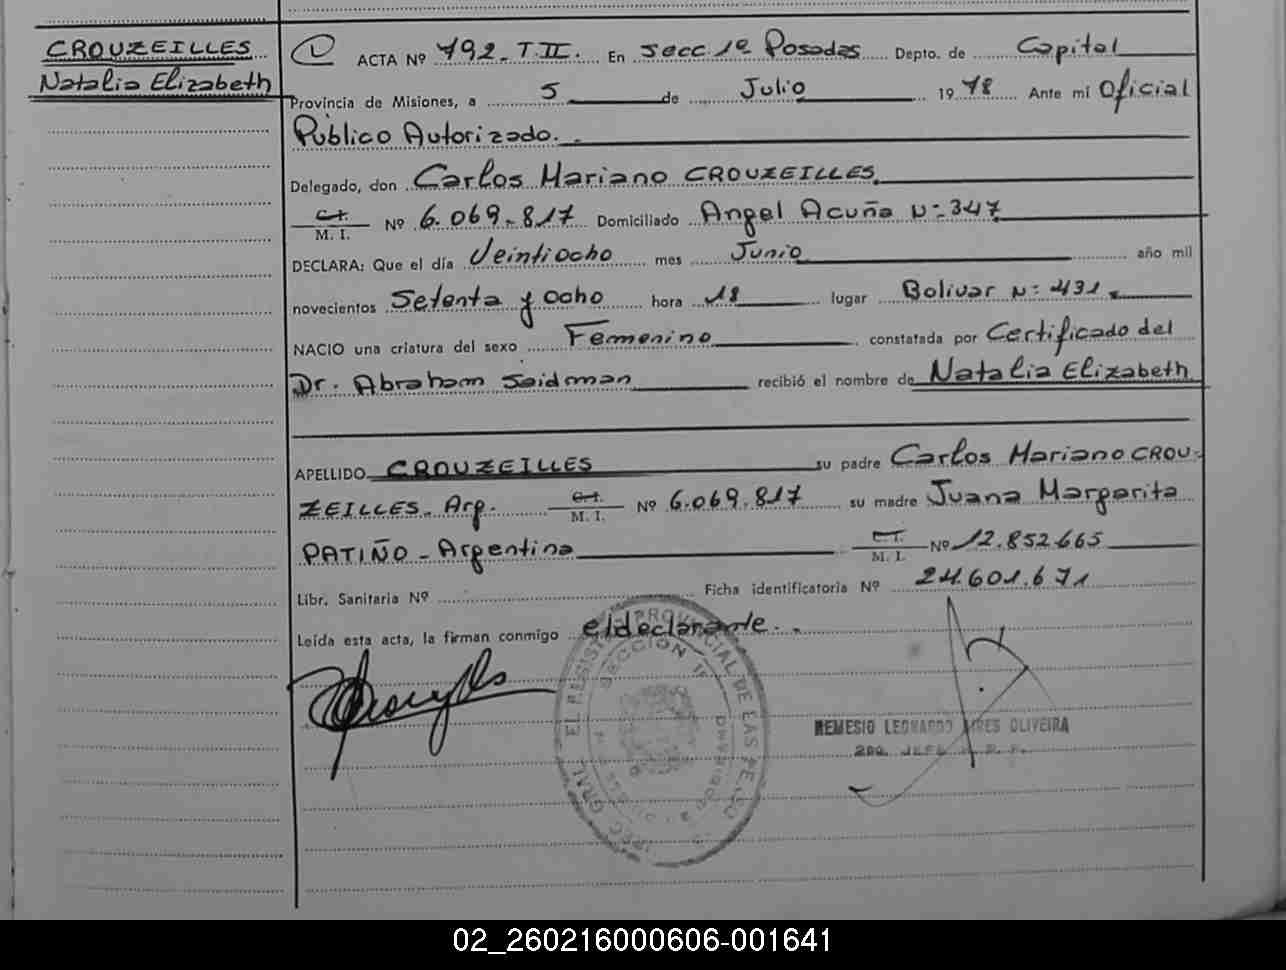 CROUZEILLES
Natalia Elizabeth
1 ACTA Nº 792_T.II. En secc. 1ª Posadas Depto. de Capital
Provincia de Misiones, a 5 de Julio 1978 Ante mi Oficial
Público Autorizado.
Delegado, don Carlos Mariano CROUZEILLES
C.I. M. I. Nº 6.069.817 Domiciliado Angel Acuña Nº 347
DECLARA: Que el día Veintiocho mes Junio año mil
novecientos Setenta y ocho hora 18 lugar Bolivar Nº 431.
NACIO una criatura del sexo Femenino constatada por Certificado del
Dr. Abraham Saidman recibió el nombre de Natalia Elizabeth
APELLIDO CROUZEILLES su padre Carlos Mariano CROU-
ZEILLES_ Arg. C.I. M. I. Nº 6.069.817 su madre Juana Margarita
PATIÑO_Argentina C.I. M. I. Nº 12.852.665
Libr. Sanitaria Nº Ficha identificatoria Nº 24.601.671
Leída esta acta, la firman conmigo el declarante.
PROVINCIAL DE LAS PE
SECCION 1ª
POSADAS
REMESIO LEONARDO PIRES OLIVEIRA
2DO. JEFE R. P.
02_260216000606-001641